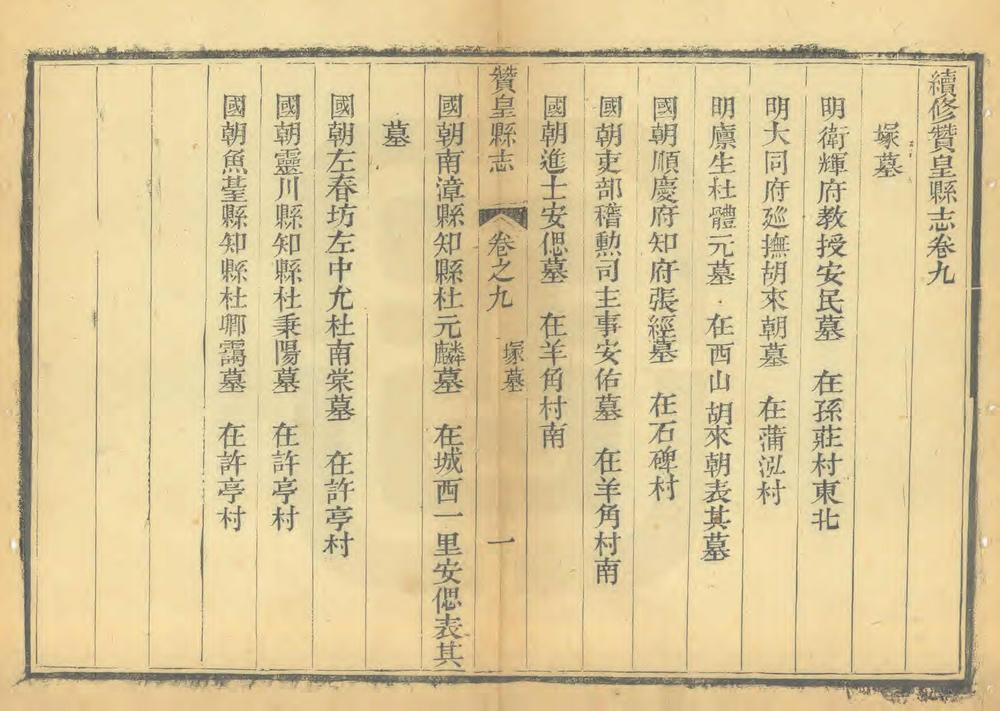 續修贊皇縣志卷九
塚墓
明衛輝府教授安民墓　在孫莊村東北
明大同府廵撫胡來朝墓　在蒲泓村
明廪生杜體元墓　在西山胡來朝表其墓
國朝順慶府知府張經墓　在石碑村
國朝吏部稽勲司主事安佑墓　在羊角村南
國朝進士安偲墓　在羊角村南
贊皇縣志　卷之九　塚墓　一
國朝南漳縣知縣杜元麟墓　在城西一里安偲表其
墓
國朝左春坊左中允杜南棠墓　在許亭村
國朝靈川縣知縣杜秉陽墓　在許亭村
國朝魚䑓縣知縣杜卿靄墓　在許亭村